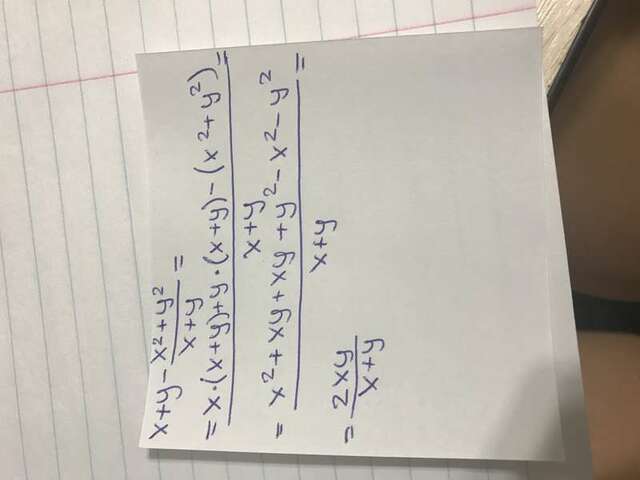 x+y-\frac{x^2+y^2}{x+y}=
=\frac{x·(x+y)+y·(x+y)-(x^2+y^2)}{x+y}=
=\frac{x^2+xy+xy+y^2-x^2-y^2}{x+y}=
=\frac{2xy}{x+y}